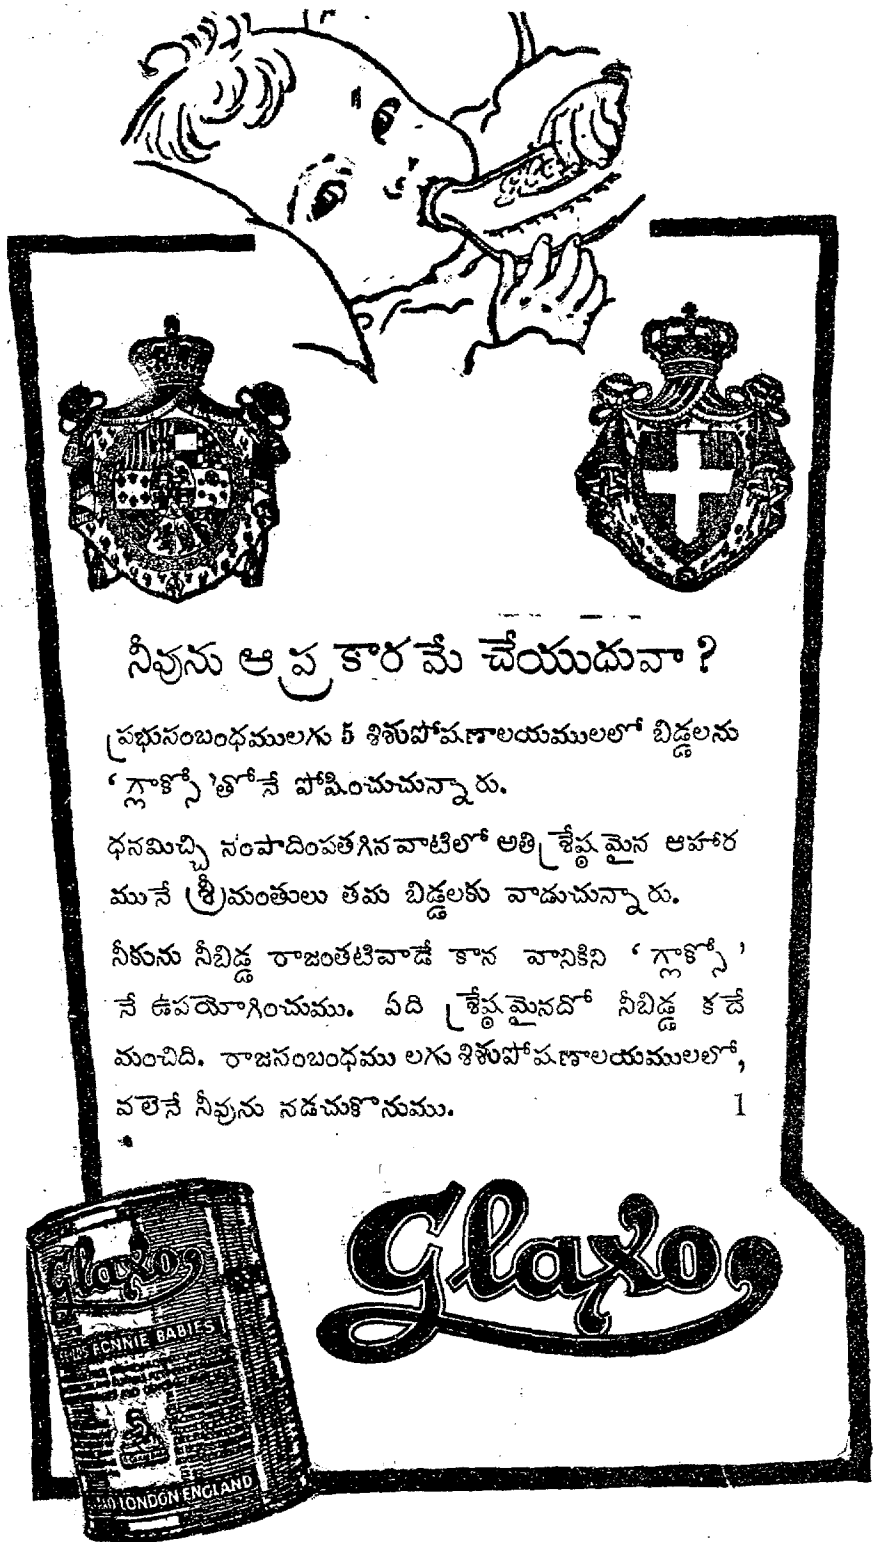 నీవును ఆ ప్రకారమే చేయుదువా ?
ప్రభుసంబంధములగు 5 శిశుపోషణాలయములలో బిడ్డలను
‘ గ్లాక్సో ’తోనే పోషించుచున్నారు.
ధనమిచ్చి సంపాదింపతగినవాటిలో అతి శ్రేష్ఠమైన ఆహార
మునే శ్రీమంతులు తమ బిడ్డలకు వాడుచున్నారు.
నీకును నీబిడ్డ రాజంతటివాడే కాన వానికిని ‘ గ్లాక్సో ’
నే ఉపయోగించుము. ఏది శ్రేష్ఠమైనదో నీబిడ్డ కదే
మంచిది. రాజసంబంధము లగు శిశుపోషణాలయములలో,
వలెనే నీవును నడచుకొనుము. 1
Glaxo
Glaxo
BONNIE BABIES
LONDON ENGLAND